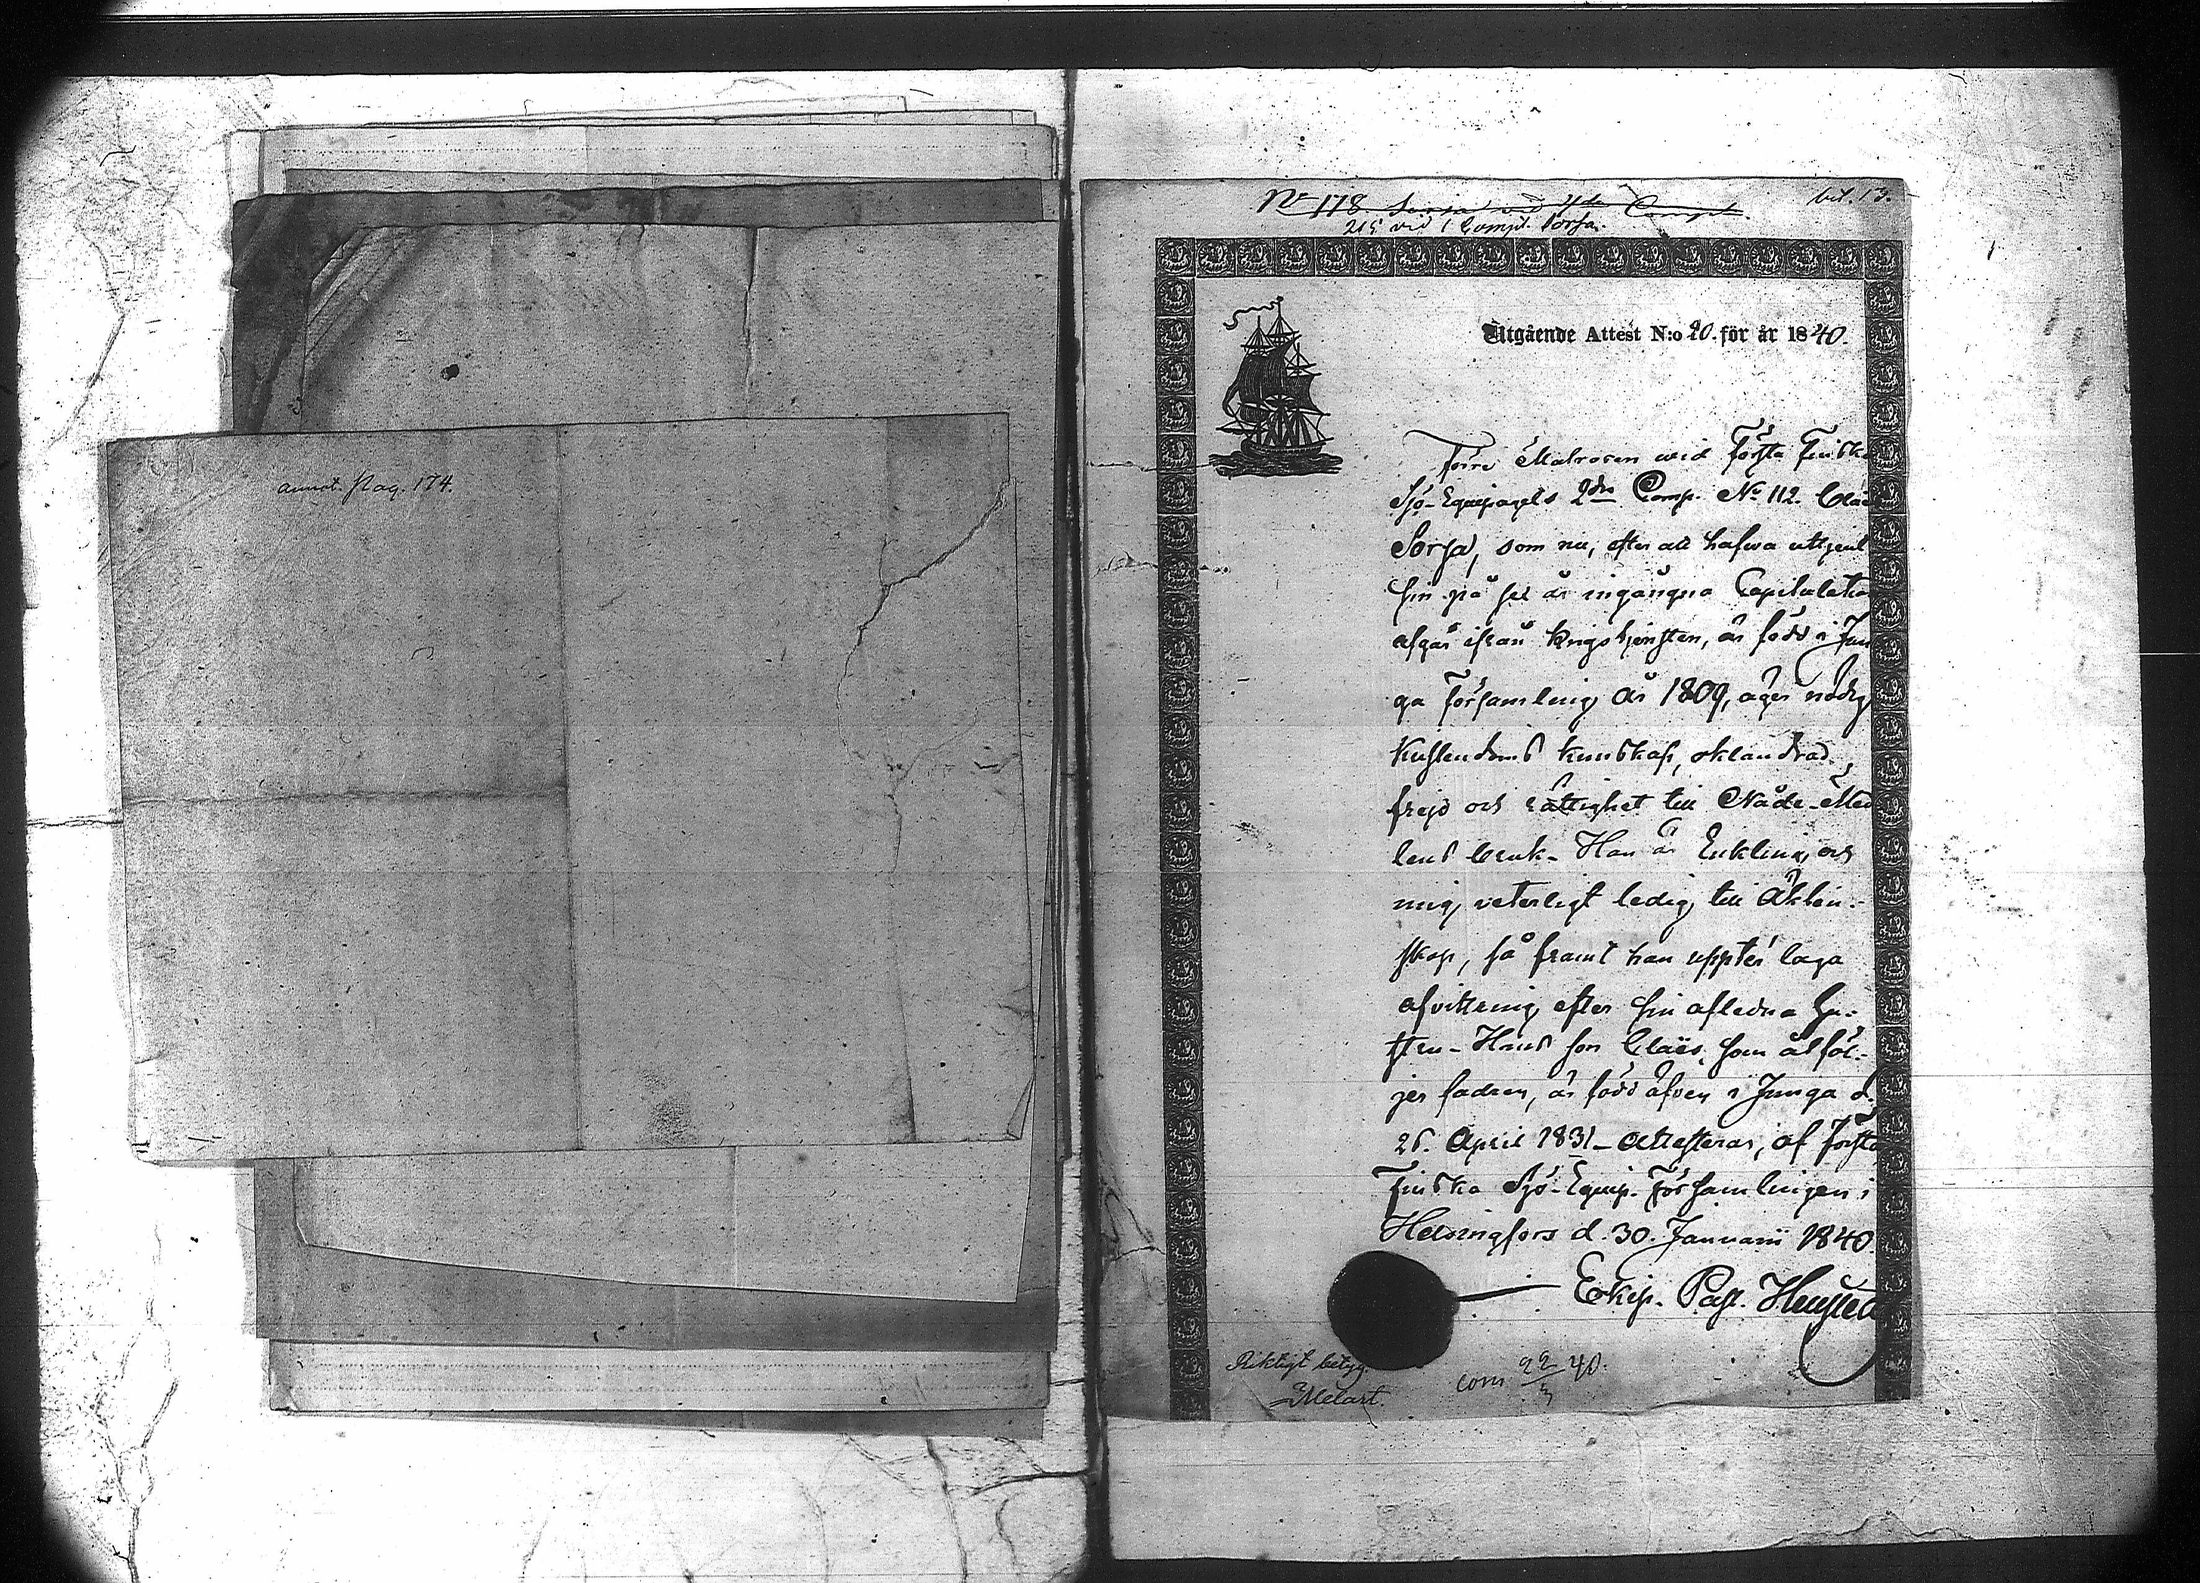 annot. pag. 174.
No 178 Sorsa vid 4de Comp.
bil. 13.
215 vid 1 Comp. Sorsa.
Utgående Attest N:o 20. för år 1840.
Förre Matrosen wid Första Finska
Sjö-Equipagets 2dra Comp. No 112. Claë
Sorsa, som nu, efter att hafwa uttjent
sin på sex år ingångna Capitulation
afgår ifrån krigstjensten, är född i Jun
ga församling år 1809, äger nödig
Kristendoms kunskap, oklandrad
frejd och rättighet till Nåde-Med
lens bruk. Han är Enkling och
mig veterligt ledig till Äkten-
skap, så framt han uppter laga
afvittring efter sin aflidna Hu-
stru. Hans son Claës, som åtföl-
jer fadren, är född äfven i Junga d.
26. April 1831. Attesteras, af Första
Finska Sjö-Equip. Församlingen i
Helsingfors d. 30. Januarii 1840.
Ekip. Past.
Riktigt betyg
Melart.
com 22/3 40.